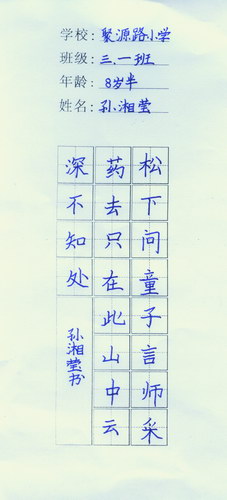 学校：聚源路小学
班级：三.一班
年龄：8岁半
姓名：孙湘莹
松下问童子言师采
药去只在此山中云
深不知处
孙湘莹书